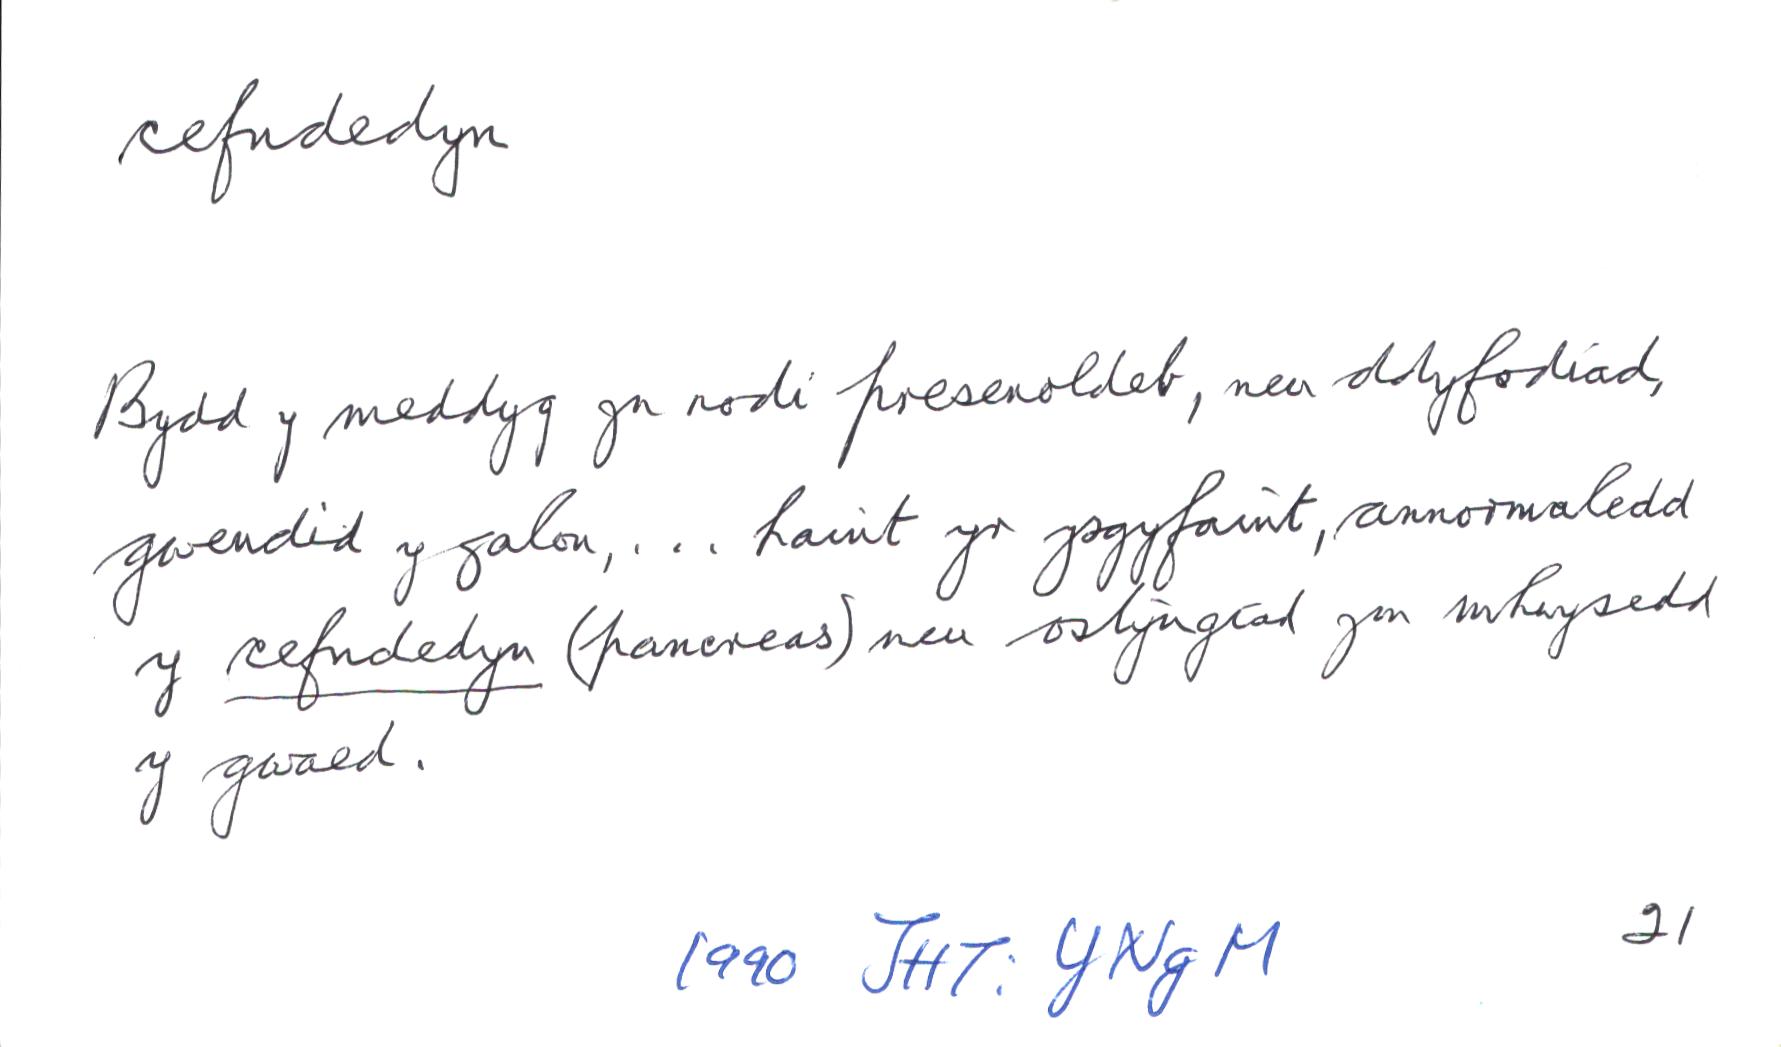 cefndedyn
Bydd y meddyg yn nodi presenoldeb, neu ddyfodiad,
gwendid y galon, ... haint yr ysgyfaint, annormaledd
y cefndedyn (pancreas) neu ostyngiad ym mhwysedd
y gwaed.
1990 JHT: YNgM
21